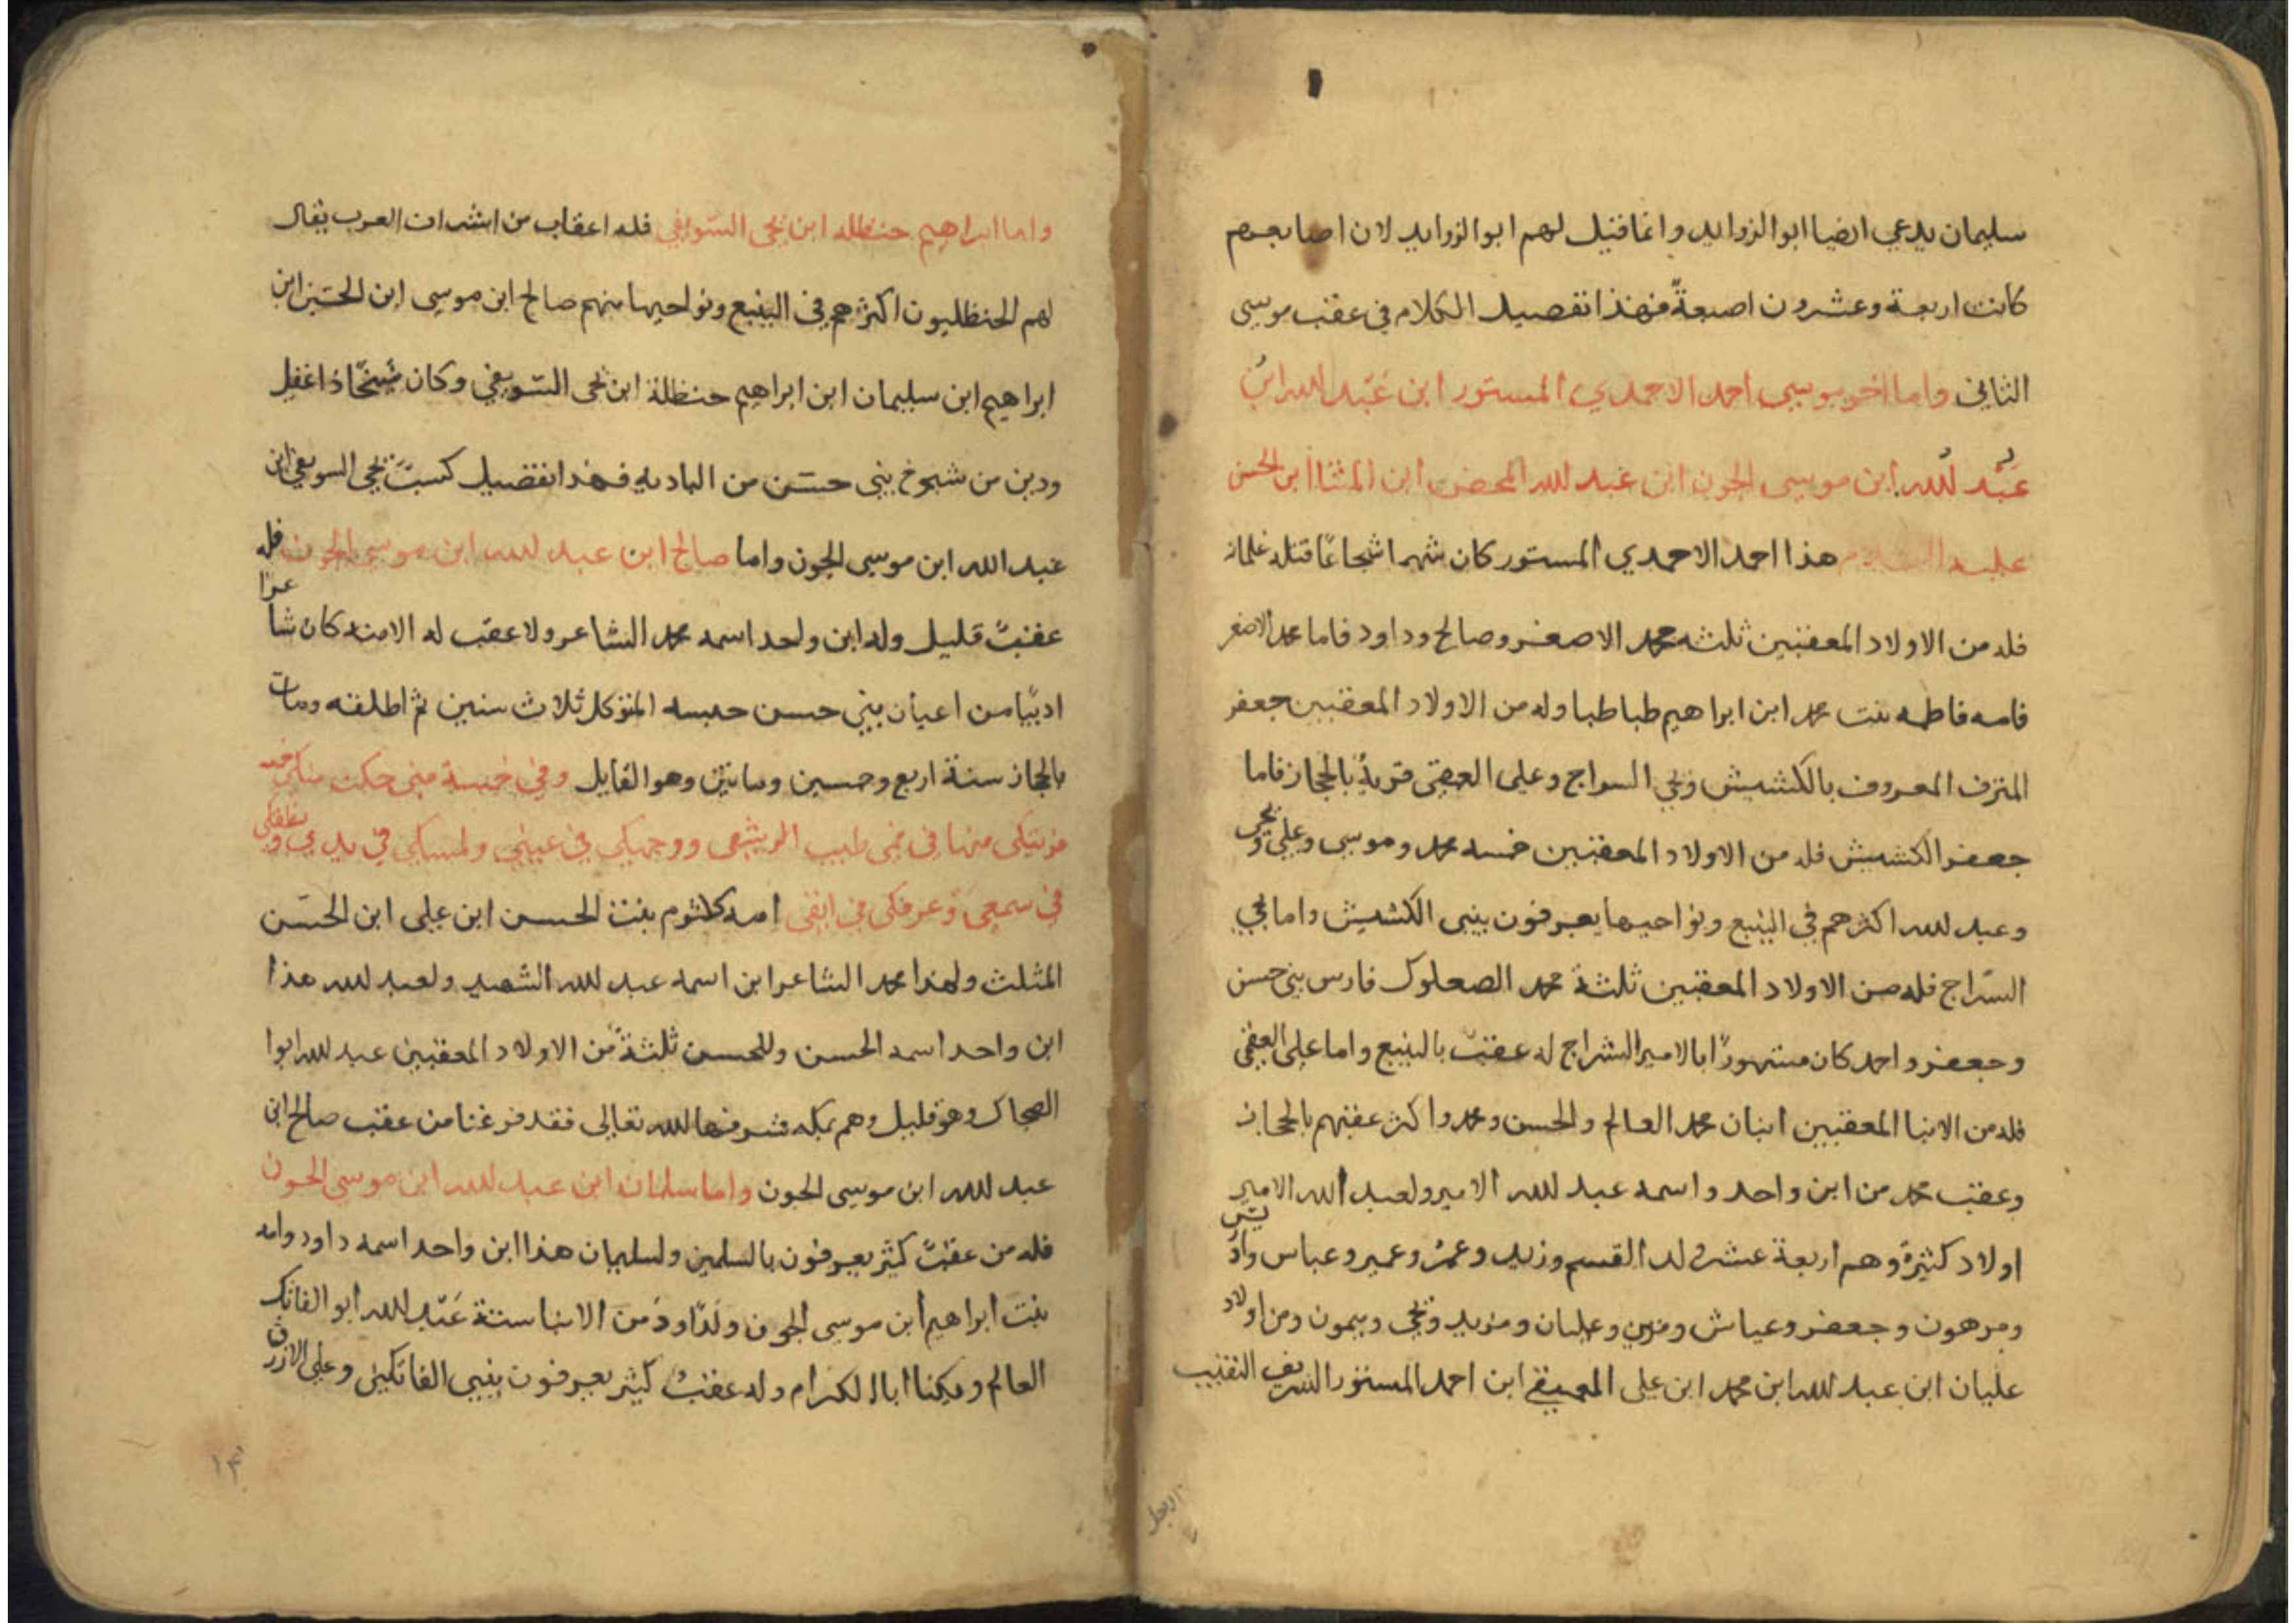 سليمان يدعي ايضا ابو الزوايد وانما قيل لهم ابو الزوايد لان اصابعهم
كانت اربعة وعشرون اصبعة فهذا تفصيل الكلام في عقب موسى
الثاني واما اخو موسى احمد الاحمدي المستور ابن عبد الله ابن
عبد لله ابن موسى الجون ابن عبد لله المحض ابن المثنا ابن الحسن
عليه السلام هذا احمد الاحمدي المستور كان شهما شجاعا قتله غلمانه
فله من الاولاد المعقبين ثلثه محمد الاصغر وصالح وداود فاما محمد الاصغر
فامه فاطمه بنت محمد ابن ابراهيم طباطبا وله من الاولاد المعقبين جعفر
المترف المعروف بالكشيش ويحي السراج وعلى العمقى قرية بالحجاز فاما
جعفر الكشيش فله من الاولاد المعقبين خمسه محمد وموسى وعلي ويحيى
وعبد لله اكثرهم في الينبع ونواحيها يعرفون ببنى الكشيش واما يحيي
السراج فله من الاولاد المعقبين ثلثة محمد الصعلوك فارس بني حسن
وجعفر واحمد كان مشهورا بالامير السراج له عقب بالينبع واما على العمقي
فله من الابنا المعقبين ابنان محمد العالم والحسن ومحمد واكثر عقبهم بالحجاز
وعقب محمد من ابن واحد واسمه عبد لله الامير ولعبد الله الامير
اولاد كثيرة وهم اربعة عشر ولد القسم وزيد وعمر وعمير وعباس وادريس
ومرهون وجعفر وعياش ومزين وعليان ومزيد ويحي وميمون ومن اولاد
عليان ابن عبد لله ابن محمد ابن على العميقي ابن احمد المستور الشريف النقيب
واما ابراهيم حنظله ابن يحى السويقي فله اعقاب من اشداف العرب يقال
لهم الحنظليون اكثرهم في الينبع ونواحيها منهم صالح ابن موسى ابن الحسين ابن
ابراهيم ابن سليمان ابن ابراهيم حنظلة ابن يحى السويقي وكان شيخا ذا عقل
ودين من شيوخ بني حسن من الباديه فهذا تفصيل يحي السويقي ابن
عبد الله ابن موسى الجون واما صالح ابن عبد لله ابن موسى الجون فله
عقب قليل وله ابن واحد اسمه محمد الشاعر ولا عقب له الا منه كان شاعرا
اديبا من اعيان بني حسن حبسه المتوكل ثلاث سنين ثم اطلقه ومات
بالحجاز سنة اربع وخمسين وماتين وهو القايل وفي خمسة مني حلت منكي خمسه
فريتكي منها في فمي طيب الريشهى ووجهكي في عيني ولمسكي في يدي ونطقكي
في سمعي وعرفكي في انفي امه كلثوم بنت الحسن ابن على ابن الحسن
المثلث ولهذا محمد الشاعر ابن اسمه عبد لله الشهيد ولعبد لله هذا
ابن واحد اسمه الحسن وللحسن ثلثة من الاولاد المعقبين عبد لله ابوا
الضحاك وهو قليل وهم بمكه شرفها لله تعالى فقد فرغنا من عقب صالح ابن
عبد لله ابن موسى الجون واما سلمان ابن عبد لله ابن موسى الجون
فله من عقب كثير يعرفون بالسلمين ولسليمان هذا ابن واحد اسمه داود وامه
بنت ابراهيم ابن موسى الجون ولداود من الابنا ستة عبد لله ابو الفاتك
العالم ويكنا ابا الكرام وله عقب كثير يعرفون ببني الفاتكين وعلى الازرق
١٣